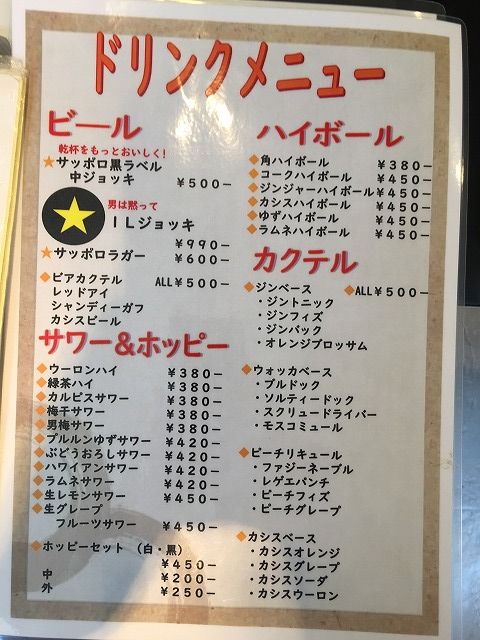 ドリンクメニュー
ビール
乾杯をもっとおいしく!
★サッポロ黒ラベル
中ジョッキ ¥500−
男は黙って
1Lジョッキ
¥990−
★サッポロラガー ¥600−
◆ビアカクテル ALL¥500−
レッドアイ
シャンディーガフ
カシスビール
サワー&ホッピー
◆ウーロンハイ ¥380−
◆緑茶ハイ ¥380−
◆カルピスサワー ¥380−
◆梅干サワー ¥380−
◆男梅サワー ¥380−
◆プルルンゆずサワー ¥420−
◆ぶどうおろしサワー ¥420−
◆ハワイアンサワー ¥420−
◆ラムネサワー ¥420−
◆生レモンサワー ¥450−
◆生グレープ
フルーツサワー ¥450−
◆ホッピーセット (白・黒)
¥450−
中 ¥200−
外 ¥250−
ハイボール
◆角ハイボール ¥380−
◆コークハイボール ¥450−
◆ジンジャーハイボール¥450−
◆カシスハイボール ¥450−
◆ゆずハイボール ¥450−
◆ラムネハイボール ¥450−
カクテル
◆ジンベース ◆ALL¥500−
・ジントニック
・ジンフィズ
・ジンバック
・オレンジブロッサム
◆ウォッカベース
・ブルドック
・ソルティードック
・スクリュードライバー
・モスコミュール
◆ピーチリキュール
・ファジーネーブル
・レゲエパンチ
・ピーチフィズ
・ピーチグレープ
◆カシスベース
・カシスオレンジ
・カシスグレープ
・カシスソーダ
・カシスウーロン